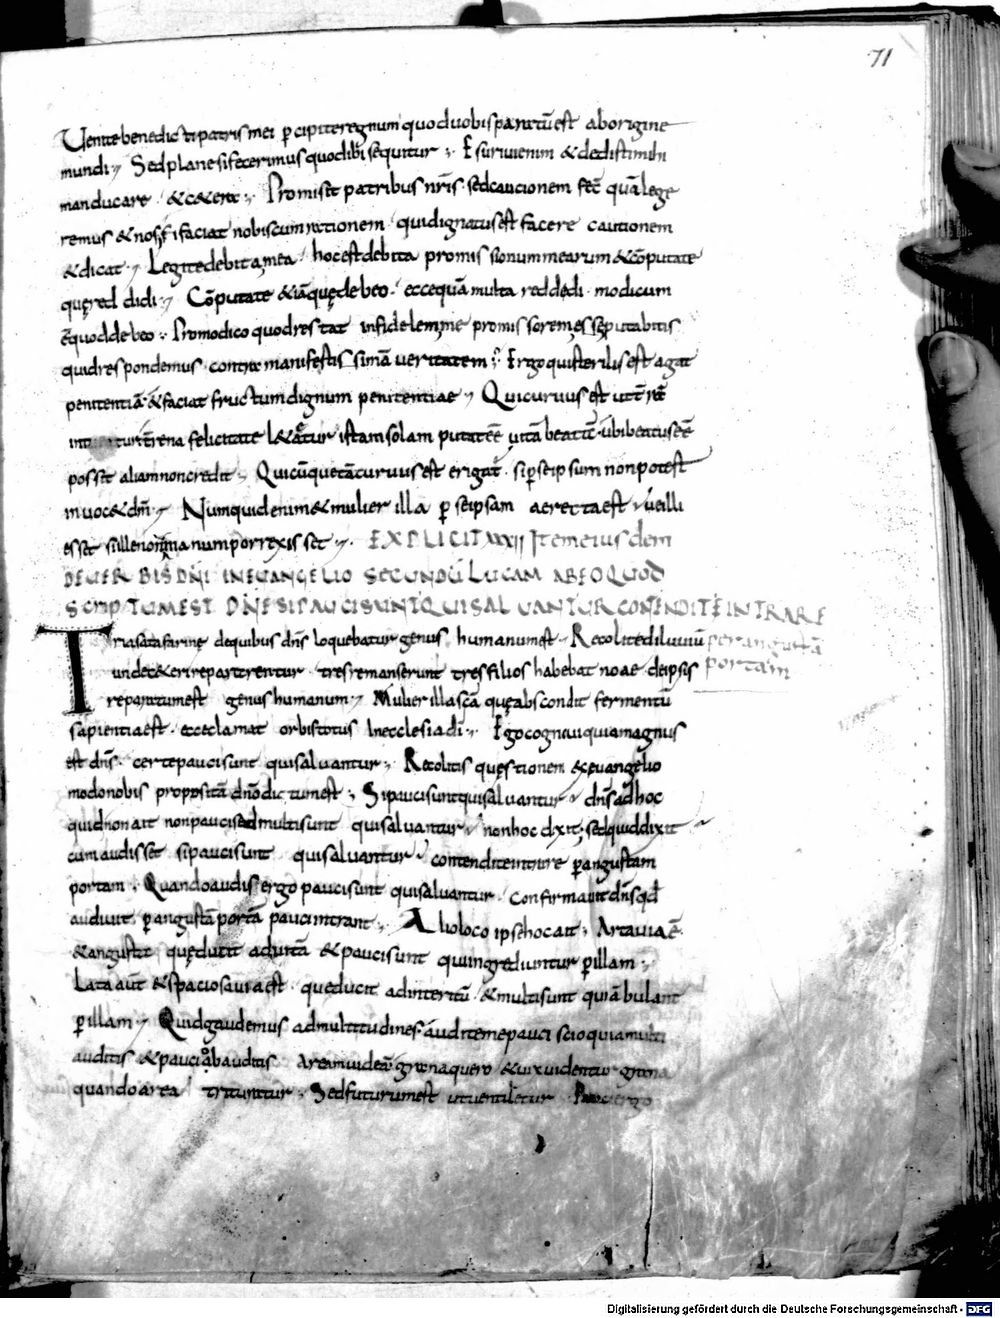 71
Uenite benedicti patris mei p̄cipite regnum quod uobis paratū est ab origine
mundi · Sed plane si fecerimus quod ibi sequitur · Esuriui enim & dedistis mihi
manducare · &cetera · Promisit patribus nr̄is · sed cautionem fec̄ quā lege
remus & nos; si faciat nobiscum rationem qui dignatus est facere cautionem
& dicat · Legite debita mea · hoc est debita promissionum mearum & cōputate
quę reddidi · Cōputate & iā quę debeo · ecce quā multa reddedi · modicum
ē quod debeo · Pro modico quod restat infidelem me promissorem esse putabitis
quid respondemus contra manifestissimā ueritatem · Ergo qui sterilis est agat
penitentiā · & faciat fructum dignum penitentiae · Qui curuus est
terrena felicitate lętatur istam solam putat eē uitā beatā · ubi beatus eē
possit aliam non credit · Quicūque tā curuus est erigat · si per se ipsum non potest
inuocet dm̄ · Numquid enim & mulier illa p̄ se ipsam erecta est uę illi
esset si ille non manum porrexisset · EXPLICIT XXXII Item eiusdem
DE UERBIS DN̄I IN EUANGELIO SECUNDŪ LUCAM AB EO QUOD
SCRIPTUM EST DN̄E SI PAUCI SUNT QUI SALUANTUR CONTENDITE INTRARE
per angustā
portam
Tria sata farinę de quibus dn̄s loquebatur genus humanum est · Recolite diluuiū
unde tres remanserunt tres filios habebat noae de ipsis
reparatum est genus humanum · Mulier illa scā quę abscondit fermentū
sapientia est · ecce clamat orbis totus in ecclesia dī · Ego cognoui quia magnus
est dn̄s · certe pauci sunt qui saluantur · Recolitis quęstionem ex euangelio
modo nobis propositā dn̄o dictum est · Si pauci sunt qui saluantur · dn̄s ad hoc
quid non ait non pauci sed multi sunt qui saluantur · non hoc dixit; sed quid dixit
cum audisset si pauci sunt qui saluantur · contendite intrare p̄ angustam
portam · Quando audis ergo pauci sunt qui saluantur · confirmauit dn̄s qd̄
audiuit · p̄ angustā portā pauci intrant · Alio loco ipse hoc ait · Arta uia ē
& angusta quę ducit ad uitā & pauci sunt qui ingrediuntur p̄ illam ·
Lata aūt & spaciosa uia est quę ducit ad interitū & multi sunt qui ābulant
p̄ illam · Quid gaudemus ad multitudines · audite me pauci scio quia multi
auditis & pauci obauditis · aream uideo grana quero & uix uidentur grana
quando area trituratur · Sed futurum est ut uentiletur · Pauci ergo
Digitalisierung gefördert durch die Deutsche Forschungsgemeinschaft - DFG